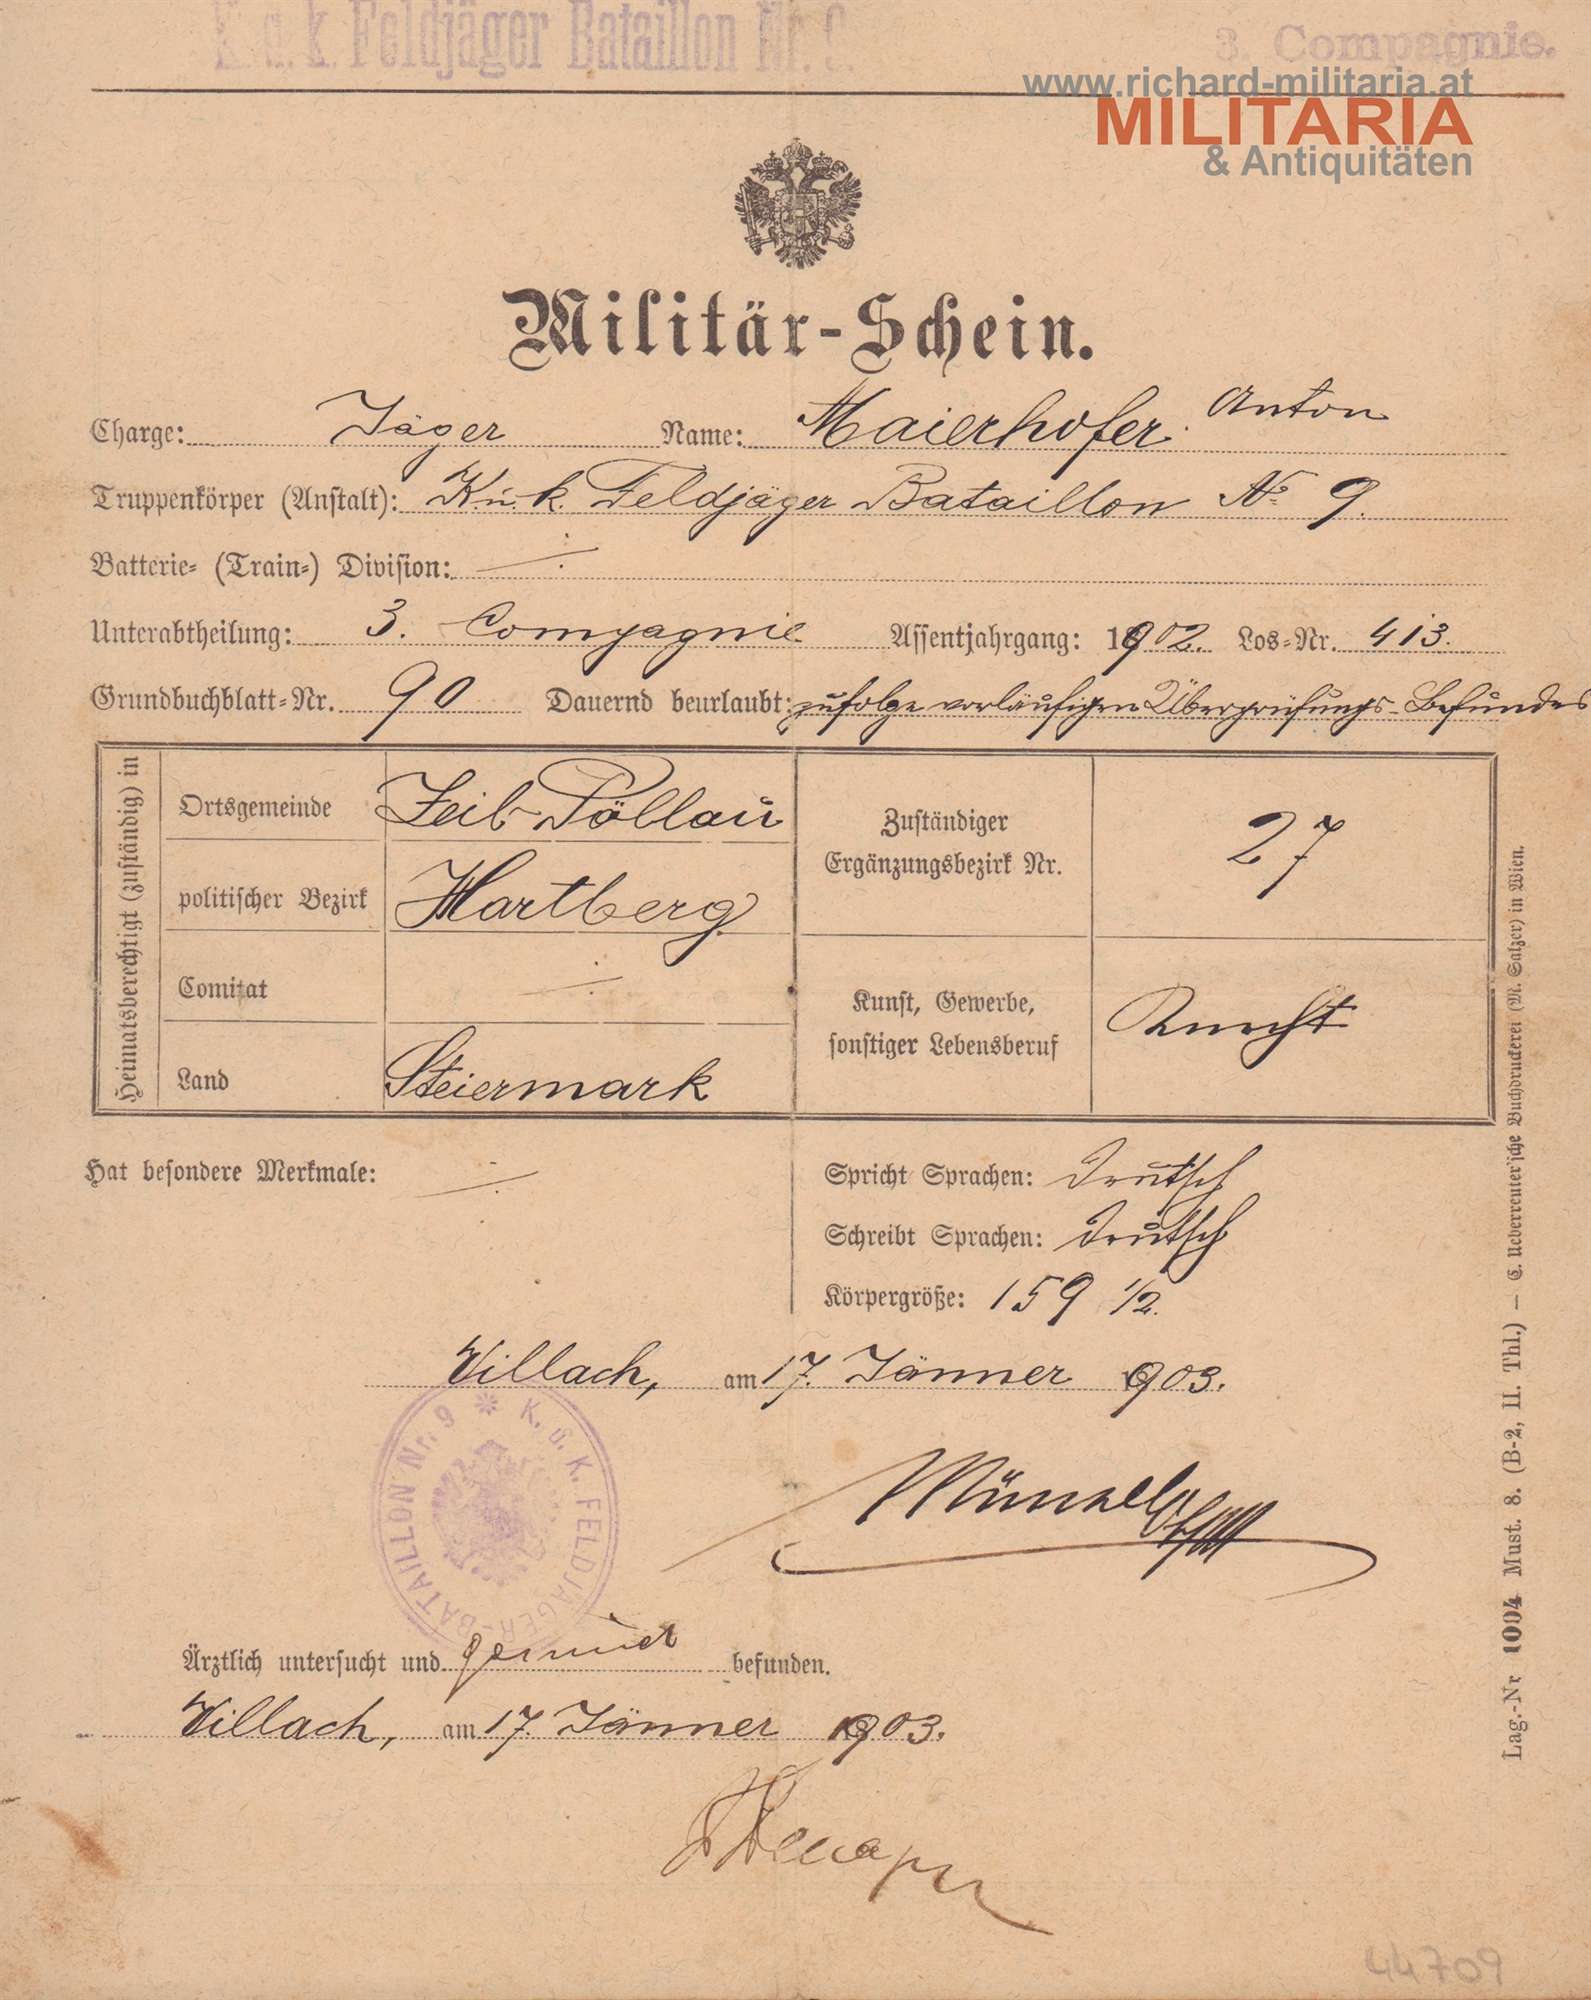 K. u. k. Feldjäger Bataillon Nr. 9.
3. Compagnie.
www.richard-militaria.at
MILITARIA
& Antiquitäten
Militär-Schein.
Charge: Jäger Name: Maierhofer Anton
Truppenkörper (Anstalt): K. u. k. Feldjäger Bataillon No 9.
Batterie- (Train-) Division: ∙/∙
Unterabtheilung: 3. Compagnie Assentjahrgang: 1902. Los-Nr. 413.
Grundbuchblatt-Nr. 90 Dauernd beurlaubt: zufolge vorläufigen Überprüfungs-Befundes
Heimatsberechtigt (zuständig) in
Ortsgemeinde Zeil-Pöllau
politischer Bezirk Hartberg
Comitat ∙/∙
Land Steiermark
Zuständiger
Ergänzungsbezirk Nr. 27
Kunst, Gewerbe,
sonstiger Lebensberuf Knecht
Hat besondere Merkmale: ∙/∙
Spricht Sprachen: Deutsch
Schreibt Sprachen: Deutsch
Körpergröße: 159 1/2.
Villach, am 17. Jänner 1903.
K. u. K. FELDJÄGER-BATAILLON Nr. 9
Ärztlich untersucht und gesund befunden.
Villach, am 17. Jänner 1903.
Lag.-Nr 1004 Must. 8. (B-2, II. Thl.) — C. Ueberreuter'sche Buchdruckerei (M. Salzer) in Wien.
44709